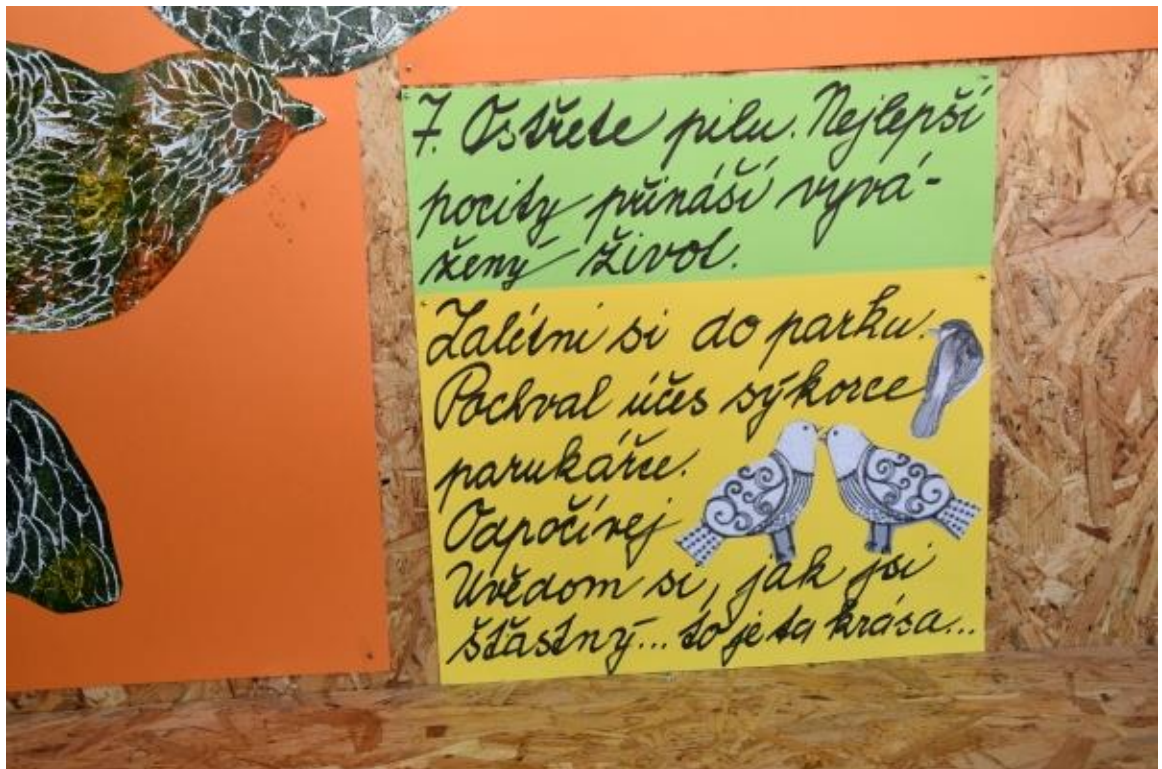 7. Ostřete pilu. Nejlepší
pocity přináší vyvá-
žený život.
Zalétni si do parku.
Pochval účes sýkorce
parukářce.
Odpočívej
Uvědom si, jak jsi
šťastný... to je ta krása...